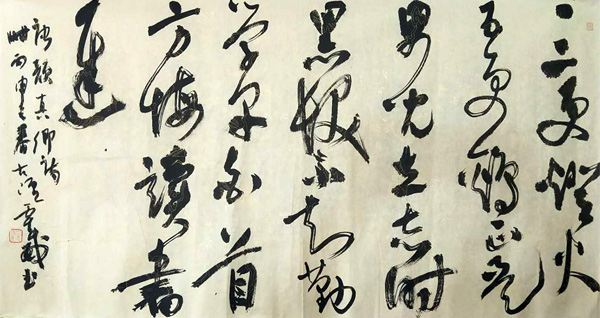 三更燈火
五更鷄正是
男兒立志时
黑髮不知勤
學早白首
方悔讀書
遲
録顔真卿詩
丙申之春古
書